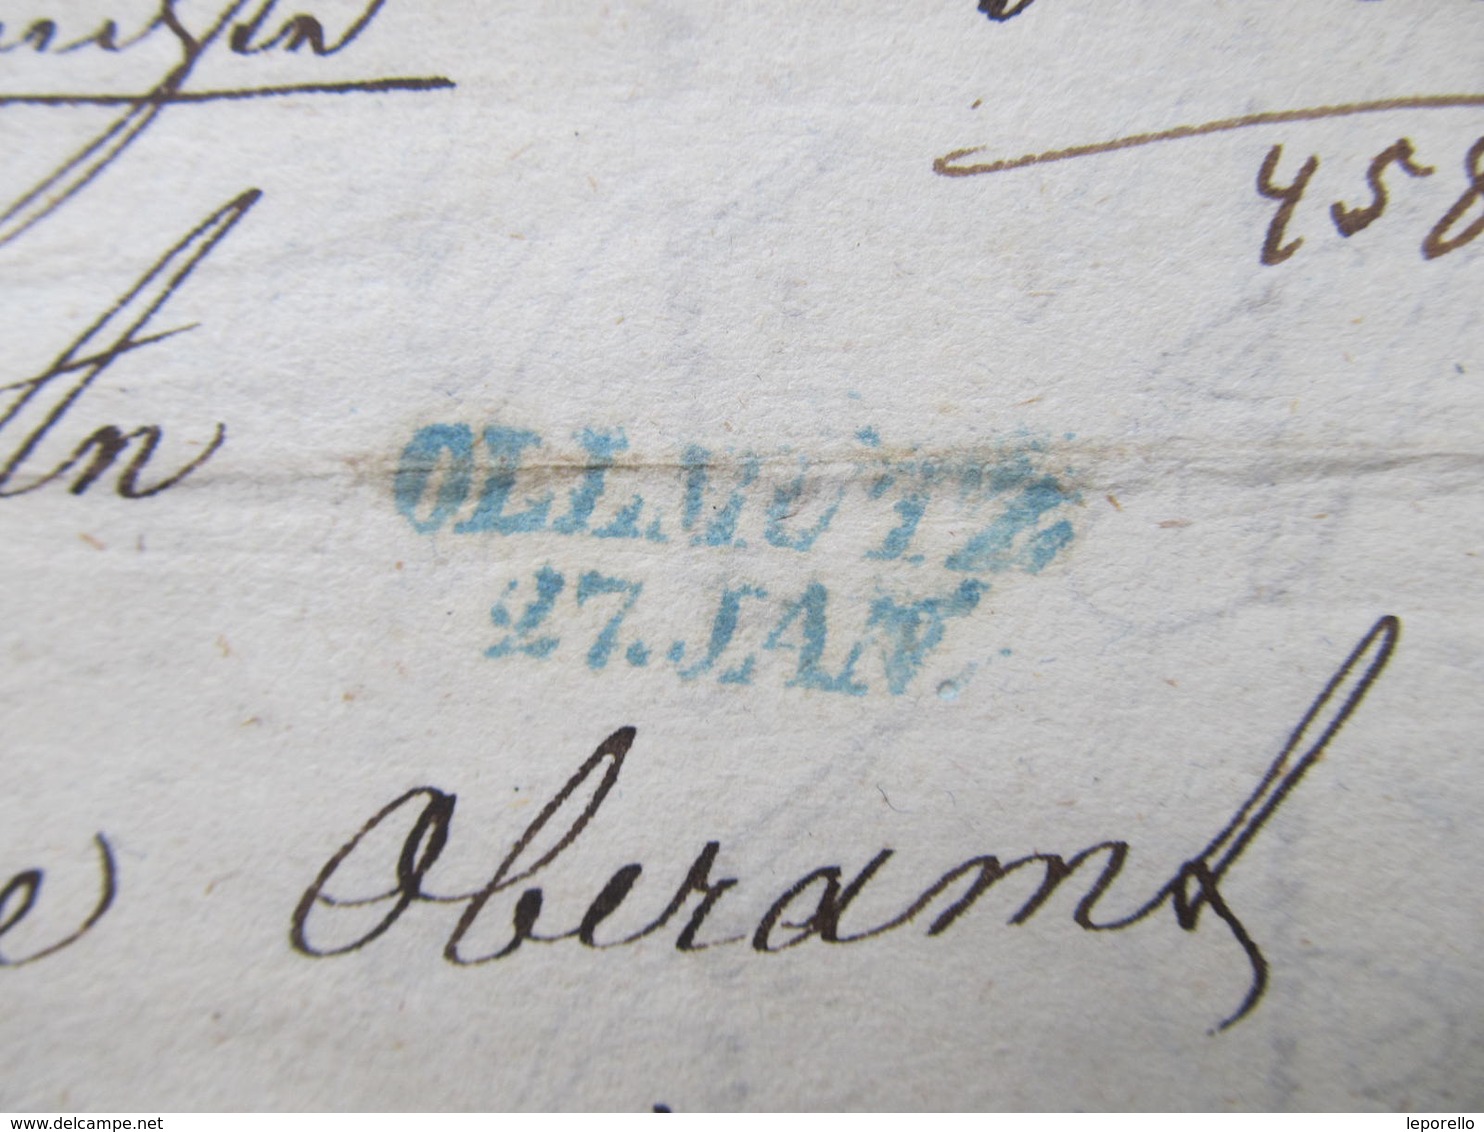 458
An
OLLMUTZ
27. JAN.
Oberamt
www.delcampe.net
leporello